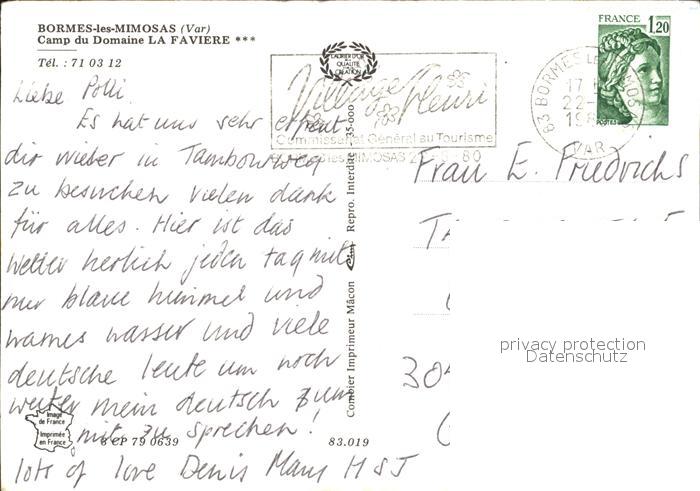 BORMES-les-MIMOSAS (Var)
Camp du Domaine LA FAVIERE ***
Tél. : 71 03 12
LAURIER D'OR DE LA QUALITÉ DE LA CRÉATION
Village Fleuri
Commissariat Général au Tourisme
MIMOSAS 80
83 BORMES
VAR
FRANCE
1,20
POSTES
Liebe Polli
Es hat uns sehr erfreut
dir wieter in Tambourweg
zu besuchen vielen dank
für alles. Hier ist das
wetter herlich jeden tag mit
nur blaue himmel und
warmes wasser und viele
deutsche leute um noch
weiter mein deutsch zum
mit zu sprechen!
lots of love Denis Mary H S J
Frau E. Friedrichs
Combier Imprimeur Mâcon Cim Repro. Interdite 35-000
privacy protection
Datenschutz
Image de France
Imprimée en France
CP 79 0639
83.019